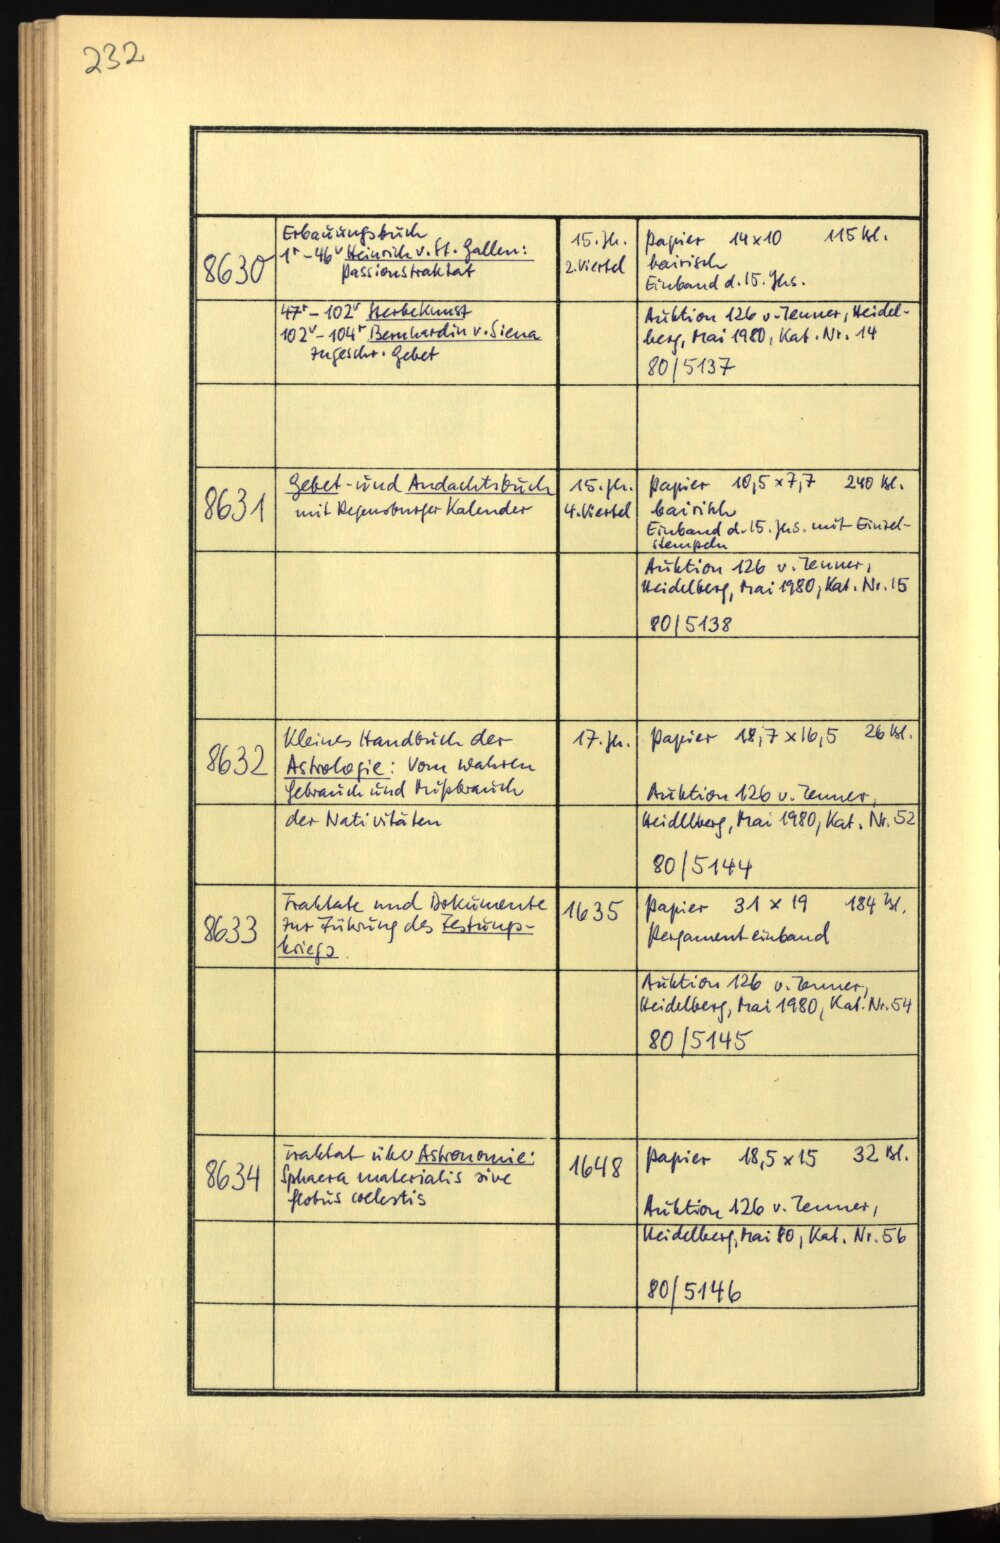 232
8630
Erbauungsbuch
1r-46v Heinrich v. St. Gallen:
Passionstraktat
47r-102v Sterbekunst
102v-104r Bernhardin v. Siena
zugeschr. Gebet
15. Jh.
2. Viertel
Papier 14x10 115 Bl.
bairisch
Einband d. 15. Jhs.
Auktion 126 v. Zenner, Heidel-
berg, Mai 1980, Kat. Nr. 14
80/5137
8631
Gebet- und Andachtsbuch
mit Regensburger Kalender
15. Jh.
4. Viertel
Papier 10,5x7,7 240 Bl.
bairisch
Einband d. 15. Jhs. mit Einzel-
stempeln
Auktion 126 v. Zenner,
Heidelberg, Mai 1980, Kat. Nr. 15
80/5138
8632
Kleines Handbuch der
Astrologie: Vom wahren
Gebrauch und Mißbrauch
der Nativitäten
17. Jh.
Papier 18,7x16,5 26 Bl.
Auktion 126 v. Zenner,
Heidlberg, Mai 1980, Kat. Nr. 52
80/5144
8633
Traktate und Dokumente
zur Führung des Festungs-
kriegs
1635
Papier 31 x 19 184 Bl.
Pergamenteinband
Auktion 126 v. Zenner,
Heidelberg, Mai 1980, Kat. Nr. 54
80/5145
8634
Traktat über Astronomie:
Sphaera materialis sive
globus coelestis
1648
Papier 18,5x15 32 Bl.
Auktion 126 v. Zenner,
Heidelberg, Mai 80, Kat. Nr. 56
80/5146